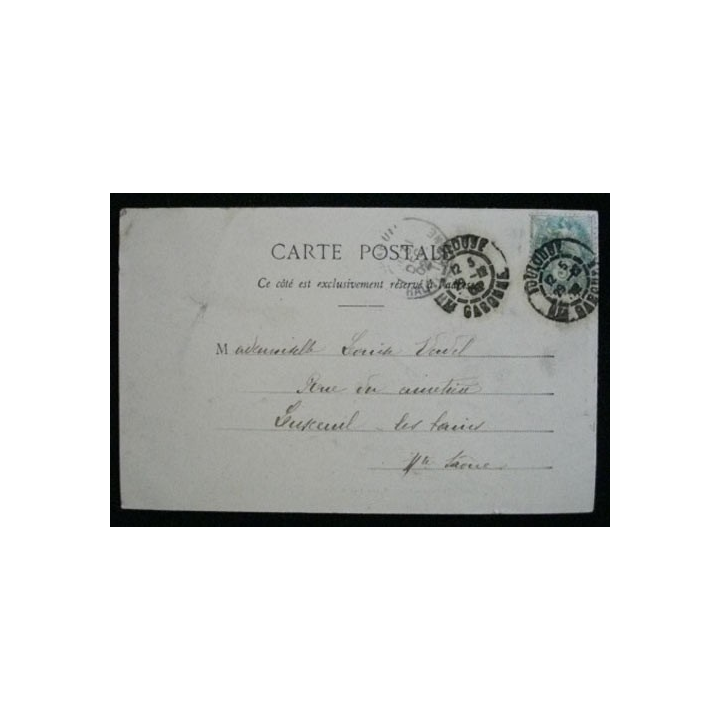 CARTE POSTALE
Ce côté est exclusivement réservé à l'adresse
TOULOUSE
Hte GARONNE
TOULOUSE
Hte GARONNE
Mademoiselle Louise
Rue du cimetière
Luxeuil-les bains
Hte Saône